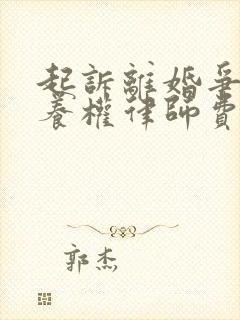 起訴離婚爭
養權律師費
郭杰